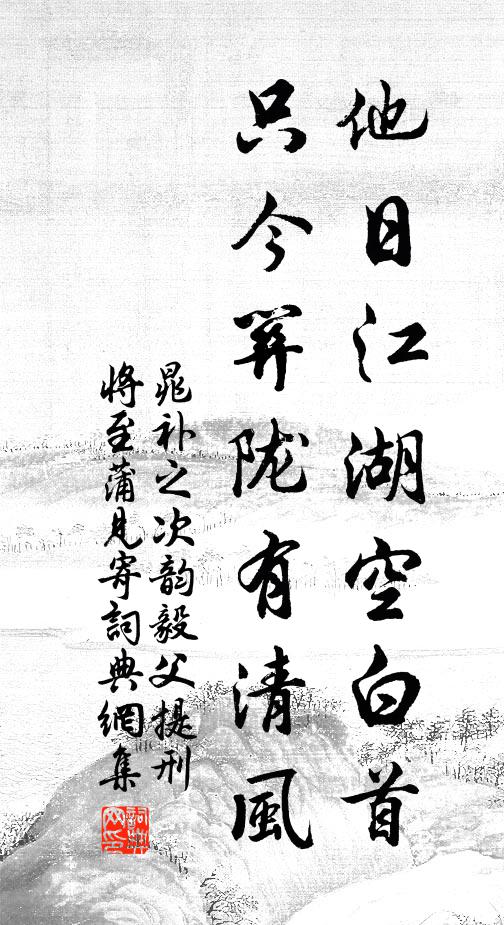 他日江湖空白首
只今笄陇有清風
晁补之次韵毅父提刑
將至蒲見寄詞典網集